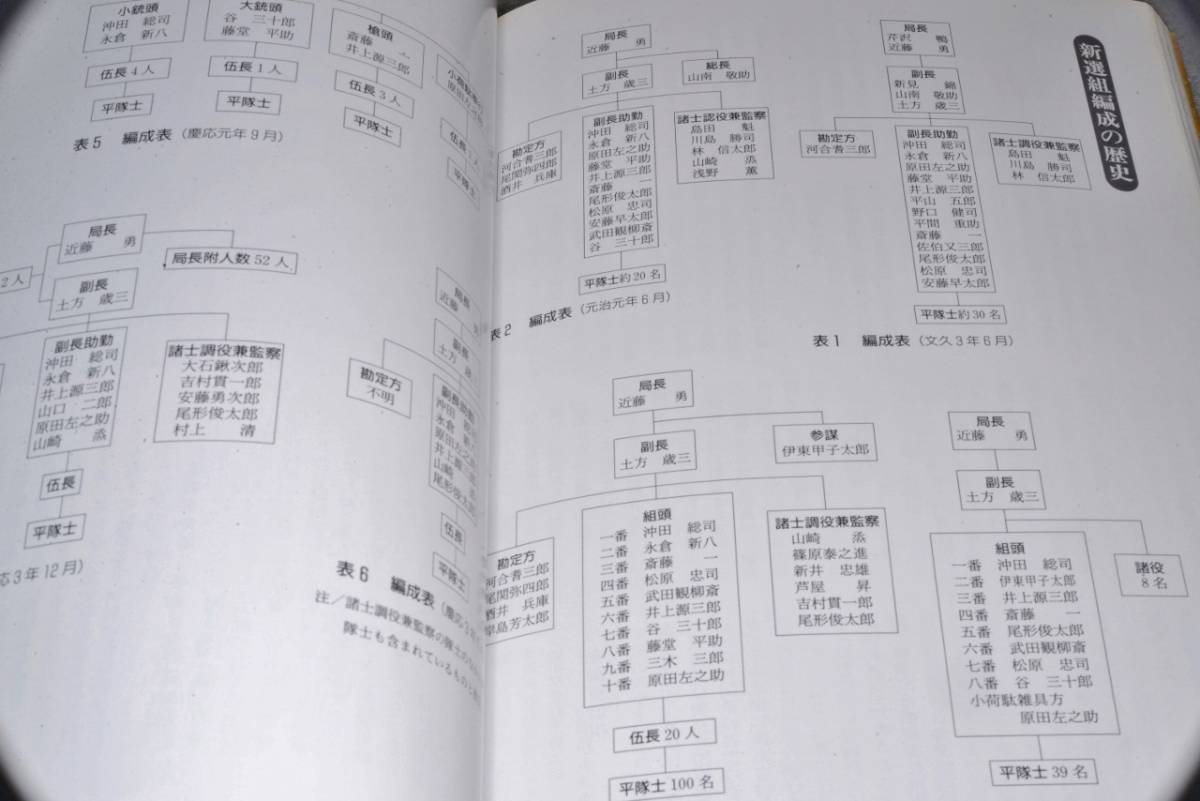 新選組編成の歴史
局長
芹沢 鴨
近藤 勇
副長
新見 錦
山南 敬助
土方 歳三
勘定方
河合耆三郎
副長助勤
沖田 総司
永倉 新八
原田左之助
藤堂 平助
井上源三郎
平山 五郎
野口 健司
平間 重助
斎藤 一
佐伯又三郎
尾形俊太郎
松原 忠司
安藤早太郎
諸士調役兼監察
島田 魁
川島 勝司
林 信太郎
平隊士約30名
表1 編成表(文久3年6月)
局長
近藤 勇
副長
土方 歳三
総長
山南 敬助
勘定方
河合耆三郎
尾関弥四郎
酒井 兵庫
副長助勤
沖田 総司
永倉 新八
原田左之助
藤堂 平助
井上源三郎
斎藤 一
尾形俊太郎
松原 忠司
安藤早太郎
武田観柳斎
谷 三十郎
諸士認役兼監察
島田 魁
川島 勝司
林 信太郎
山崎 烝
浅野 薫
平隊士約20名
表2 編成表(元治元年6月)
局長
近藤 勇
副長
土方 歳三
組頭
一番 沖田 総司
二番 伊東甲子太郎
三番 井上源三郎
四番 斎藤 一
五番 尾形俊太郎
六番 武田観柳斎
七番 松原 忠司
八番 谷 三十郎
小荷駄雑具方
原田左之助
諸役
8名
平隊士39名
局長
近藤 勇
副長
土方 歳三
参謀
伊東甲子太郎
勘定方
河合耆三郎
尾関弥四郎
酒井 兵庫
岸島芳太郎
組頭
一番 沖田 総司
二番 永倉 新八
三番 斎藤 一
四番 松原 忠司
五番 武田観柳斎
六番 井上源三郎
七番 谷 三十郎
八番 藤堂 平助
九番 三木 三郎
十番 原田左之助
諸士調役兼監察
山崎 烝
篠原泰之進
新井 忠雄
芦屋 昇
吉村貫一郎
尾形俊太郎
伍長20人
平隊士100名
小銃頭
沖田 総司
永倉 新八
伍長4人
平隊士
大銃頭
谷 三十郎
藤堂 平助
伍長1人
平隊士
槍頭
斎藤 一
井上源三郎
伍長3人
平隊士
表5 編成表(慶応元年9月)
局長
近藤
副長
土方
勘定方
不明
副長助勤
沖田
永倉
原田左之
井上源三
山崎
尾形俊太
伍長
平隊士
表6 編成表(慶応3年
注/諸士調役兼監察の隊士の
隊士も含まれているものと
局長
近藤 勇
局長附人数52人
2人
副長
土方 歳三
副長助勤
沖田 総司
永倉 新八
井上源三郎
山口 二郎
原田左之助
山崎 烝
諸士調役兼監察
大石鍬次郎
吉村貫一郎
安藤勇次郎
尾形俊太郎
村上 清
伍長
平隊士
応3年12月)